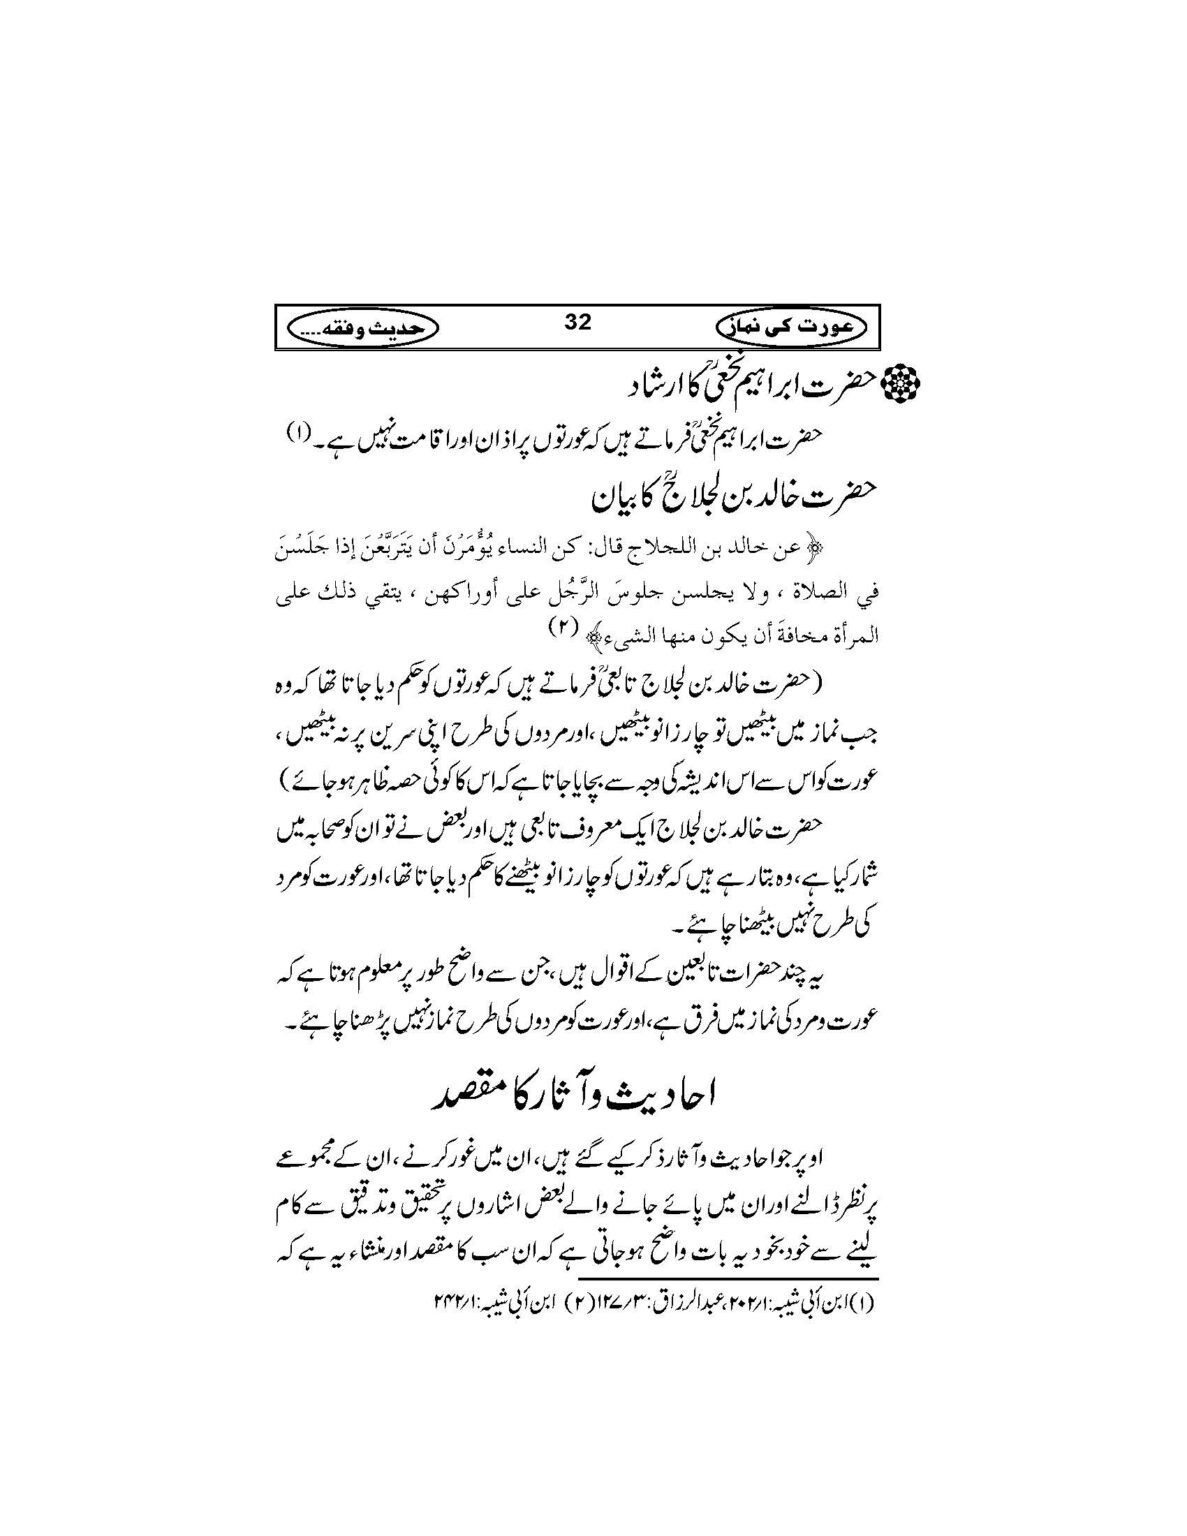 عورت کی نماز 32 حدیث و فقه....
حضرت ابراہیم نخعیؒ کا ارشاد
حضرت ابراہیم نخعیؒ فرماتے ہیں کہ عورتوں پر اذان اور اقامت نہیں ہے۔ (۱)
حضرت خالد بن لجلاجؒ کا بیان
﴿ عن خالد بن اللجلاج قال: كن النساء يُؤْمَرْنَ أن يَتَرَبَّعْنَ إذا جَلَسْنَ
في الصلاة ، ولا يجلسن جلوسَ الرَّجُل على أوراكهن ، يتقي ذلك على
المرأة مخافةَ أن يكون منها الشيء﴾ (۲)
(حضرت خالد بن لجلاج تابعیؒ فرماتے ہیں کہ عورتوں کو حکم دیا جاتا تھا کہ وہ
جب نماز میں بیٹھیں تو چار زانو بیٹھیں ،اور مردوں کی طرح اپنی سرین پر نہ بیٹھیں ،
عورت کو اس سے اس اندیشہ کی وجہ سے بچایا جاتا ہے کہ اس کا کوئی حصہ ظاہر ہو جائے )
حضرت خالد بن لجلاج ایک معروف تابعی ہیں اور بعض نے تو ان کو صحابہ میں
شمار کیا ہے، وہ بتا رہے ہیں کہ عورتوں کو چار زانو بیٹھنے کا حکم دیا جاتا تھا، اور عورت کو مرد
کی طرح نہیں بیٹھنا چاہئے۔
یہ چند حضرات تابعین کے اقوال ہیں ،جن سے واضح طور پر معلوم ہوتا ہے کہ
عورت و مرد کی نماز میں فرق ہے، اور عورت کو مردوں کی طرح نماز نہیں پڑھنا چاہئے۔
احادیث و آثار کا مقصد
اوپر جو احادیث و آثار ذکر کیے گئے ہیں، ان میں غور کرنے ،ان کے مجموعے
پر نظر ڈالنے اور ان میں پائے جانے والے بعض اشاروں پر تحقیق و تدقیق سے کام
لینے سے خود بخود یہ بات واضح ہو جاتی ہے کہ ان سب کا مقصد اور منشاء یہ ہے کہ
(۱) ابن أبی شیبہ: ۱/۲۰۲، عبد الرزاق: ۳/۱۲۷ (۲) ابن أبی شیبہ: ۱/۲۴۲